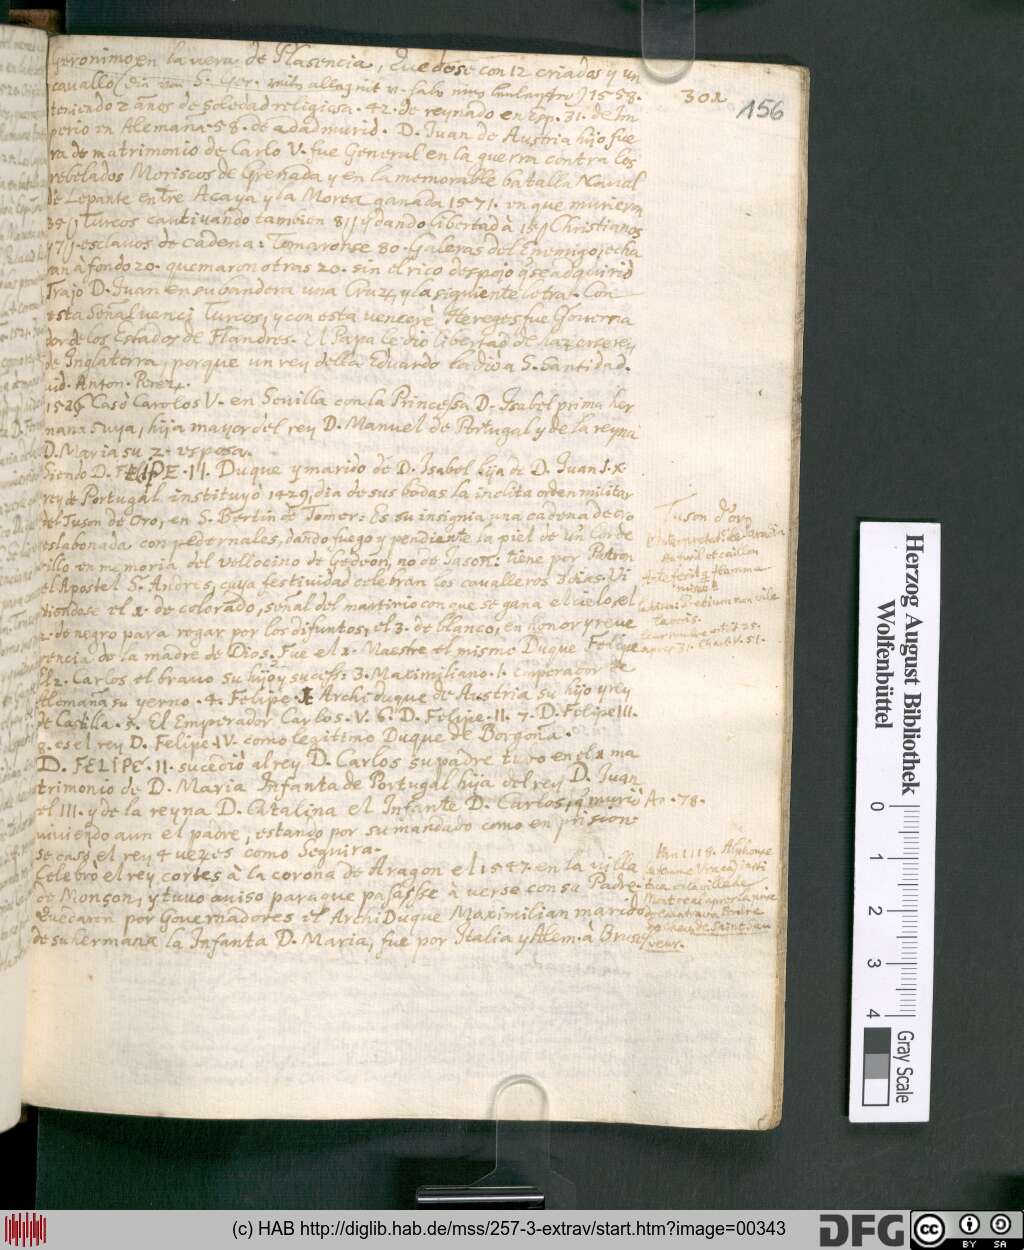 Geronimo en la vera de Plasencia, Quedose con 12 criados y un
cavallo 1558.
teniendo 2 años de soledad religiosa. 42. de reynado en Esp. 31. de Im
perio en Alemaña. 58. de adad murio. D. Juan de Austria hijo fue
ra de matrimonio de Carlo V. fue General en la guerra contra los
rebelados Moriscos de Grenada y en la memorable batalla Naval
de Lepante entre Acaya y la Morea ganada 1571. en que murieron
35 Turcos cautivando tambien 8 y dando libertad à 15 Christianos
y 7 esclavos de cadena: Tomaronse 80. Galeras del Enemigo, echa
ran à fondo 20. quemaron otras 20. sin el rico despojo q se adquirio
Trajo D. Juan en su bandera una Cruz, y la siquiente letra. Con
esta Señal vanci Turcos, y con esta vencere Hereges fue Governa
dor de los Estados de Flandres. El Papa le dio libertad de hazerse rey
de Inglaterra, porque un rey della Eduardo la dio a S. Santidad.
vid. Anton. Perez.
1526 Casò Carolos V. en Sevilla con la Princessa D. Isabel prima her
mana suya, hija mayor del rey D. Manuel de Portugal y de la reyna
D. Maria su 2. esposa.
Siendo D. FELIPE. II. Duque y marido de D. Isabel hija de D. Juan I. X.
rey de Portugal instituyò 1429, dia de sus bodas la inclita orden militar
del Tuson de Oro, en S. Bertin de Tomer: Es su insignia una cadena de oro
eslabonada con pedernales, dando fuego y pendiente la piel de un Corde
rillo en memoria del vellocino de Gedeon, no de Jason: tiene por Patron
el Apostel S. Andres, cuya festividad celebran los cavalleros 3 dias. Vi
stiendose el 1. de colorado, señal del martirio con que se gana el cielo, el
2. de negro para rogar por los difuntos, el 3. de blanco, en honor y reve
rencia de la madre de Dios. Fue el 1. Maestre el mismo Duque Felipe
El 2. Carlos el bravo su hijo y sucess: 3. Maximiliano. I. Emperador de
Alemaña su yerno. 4. Felipe. I Archiduque de Austria su hijo y rey
de Castilla. 5. El Emperador Carlos. V. 6. D. Felipe. II. 7. D. Felipe III.
8. es el rey D. Felipe. IV. como legitimo Duque de Borgoña.
D. FELIPE. II. sucediò al rey D. Carlos su padre tuvo en el 1 ma
trimonio de D. Maria Infanta de Portugal hija del rey D. Juan
el III. y de la reyna D. Catalina el Infante D. Carlos, q muriò
viviendo aun el padre, estando por su mandado como en prision
se casò el rey 4 vezes como Seguira.
Celebrò el rey cortes à la corona de Aragon el 1547. en la villa
de Monçon, y tuvo aviso para que passasse à verse con su Padre.
Quedaren por Governadores el ArchiDuque Maximilian marido
de su hermana la Infanta D. Maria, fue por Italia y Alem. à Brusel
301
156
Tuson d'or
Ao. 78.
An 1118. Alphonse
Herzog August Bibliothek
Wolfenbüttel
0 1 2 3 4
Gray Scale
(c) HAB http://diglib.hab.de/mss/257-3-extrav/start.htm?image=00343
DFG
cc BY SA